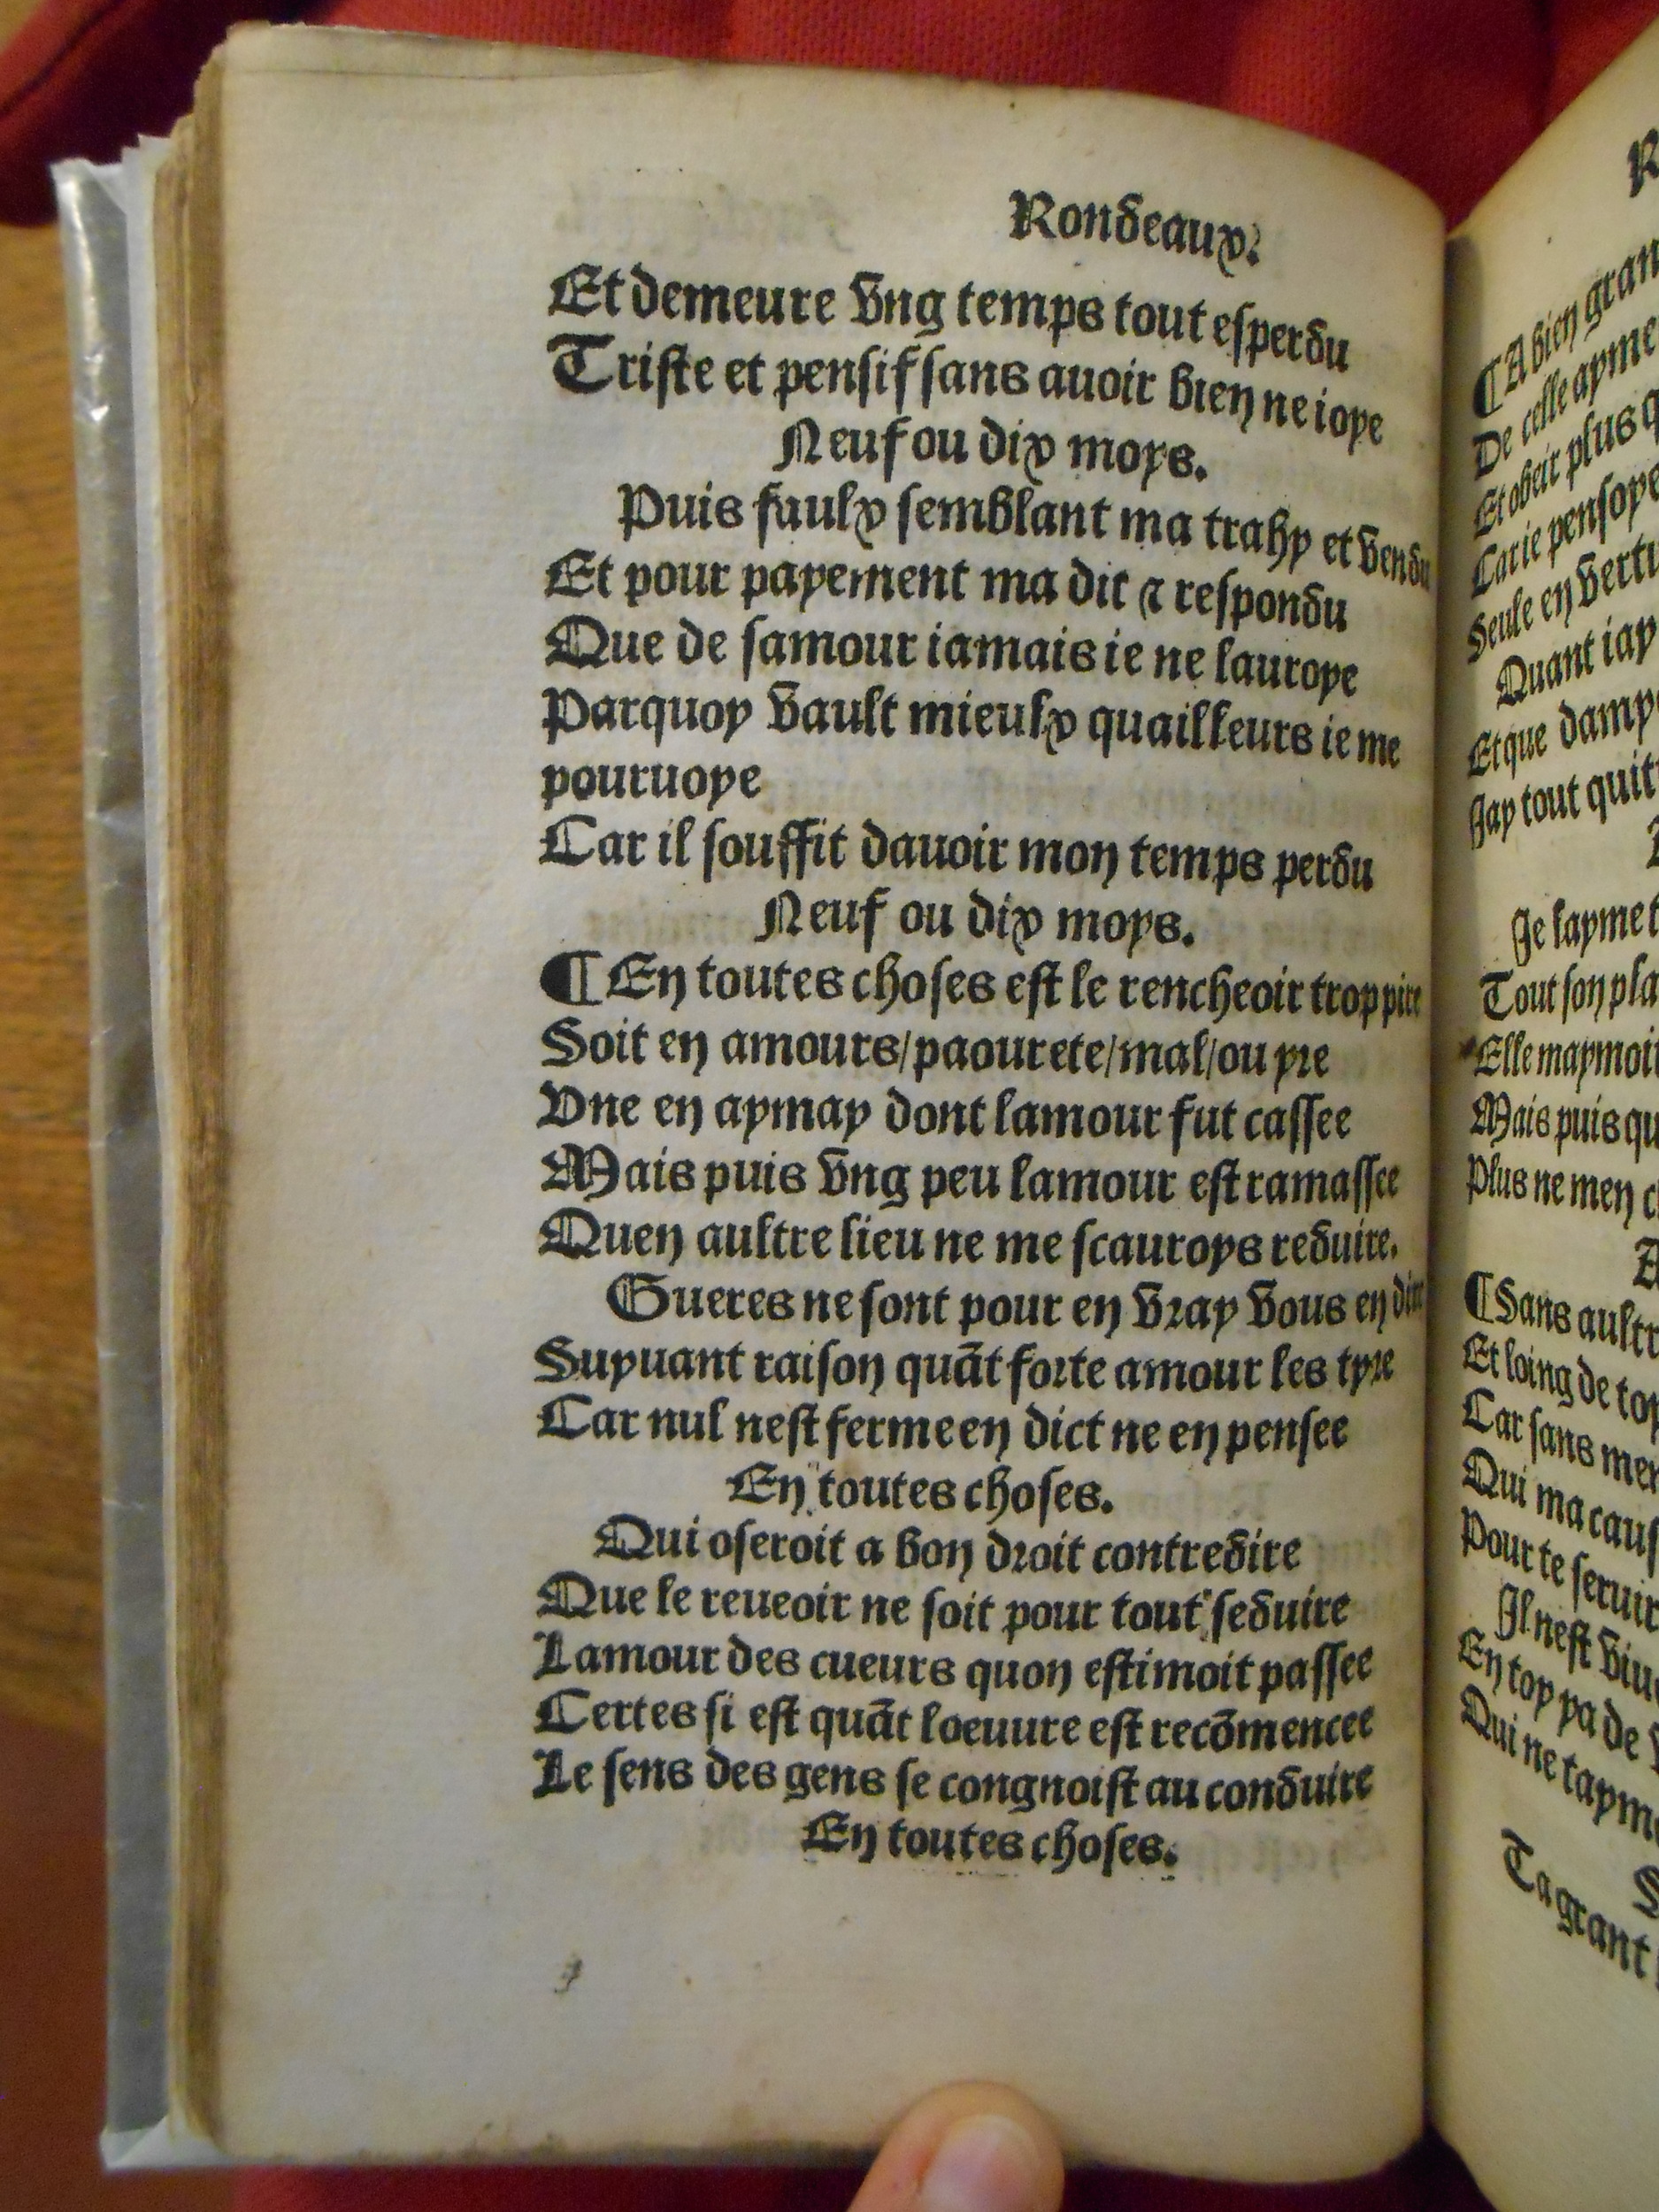 Rondeaux.
Et demeure vng temps tout esperdu
Triste et pensif sans auoir bien ne ioye
Neuf ou dix moys.
Puis faulx semblant ma trahy et vendu
Et pour payement ma dit ⁊ respondu
Que de samour iamais ie ne lauroye
Parquoy vault mieulx quailleurs ie me
pouruoye
Car il souffit dauoir mon temps perdu
Neuf ou dix moys.
¶ En toutes choses est le rencheoir trop pire
Soit en amours/paourete/mal/ou yre
Vne en aymay dont lamour fut cassee
Mais puis vng peu lamour est ramassee
Quen aultre lieu ne me scauroys reduire.
Gueres ne sont pour en vray vous en dire
Suyuant raison quāt forte amour les tyre
Car nul nest ferme en dict ne en pensee
En toutes choses.
Qui oseroit a bon droit contredire
Que le reueoir ne soit pour tout seduire
Lamour des cueurs quon estimoit passee
Certes si est quāt loeuure est recōmencee
Le sens des gens se congnoist au conduire
En toutes choses.
¶ A bien
De celle
Et obeir plus
Car ie
Seule en
Quant iay
Et que
Jay tout
Je layme
Tout son
Elle maymoit
Mais puis
Plus ne men
¶ Sans
Et loing de
Car sans
Qui ma
Pour te
Il nest
En toy ya de
Qui ne
Ta grant